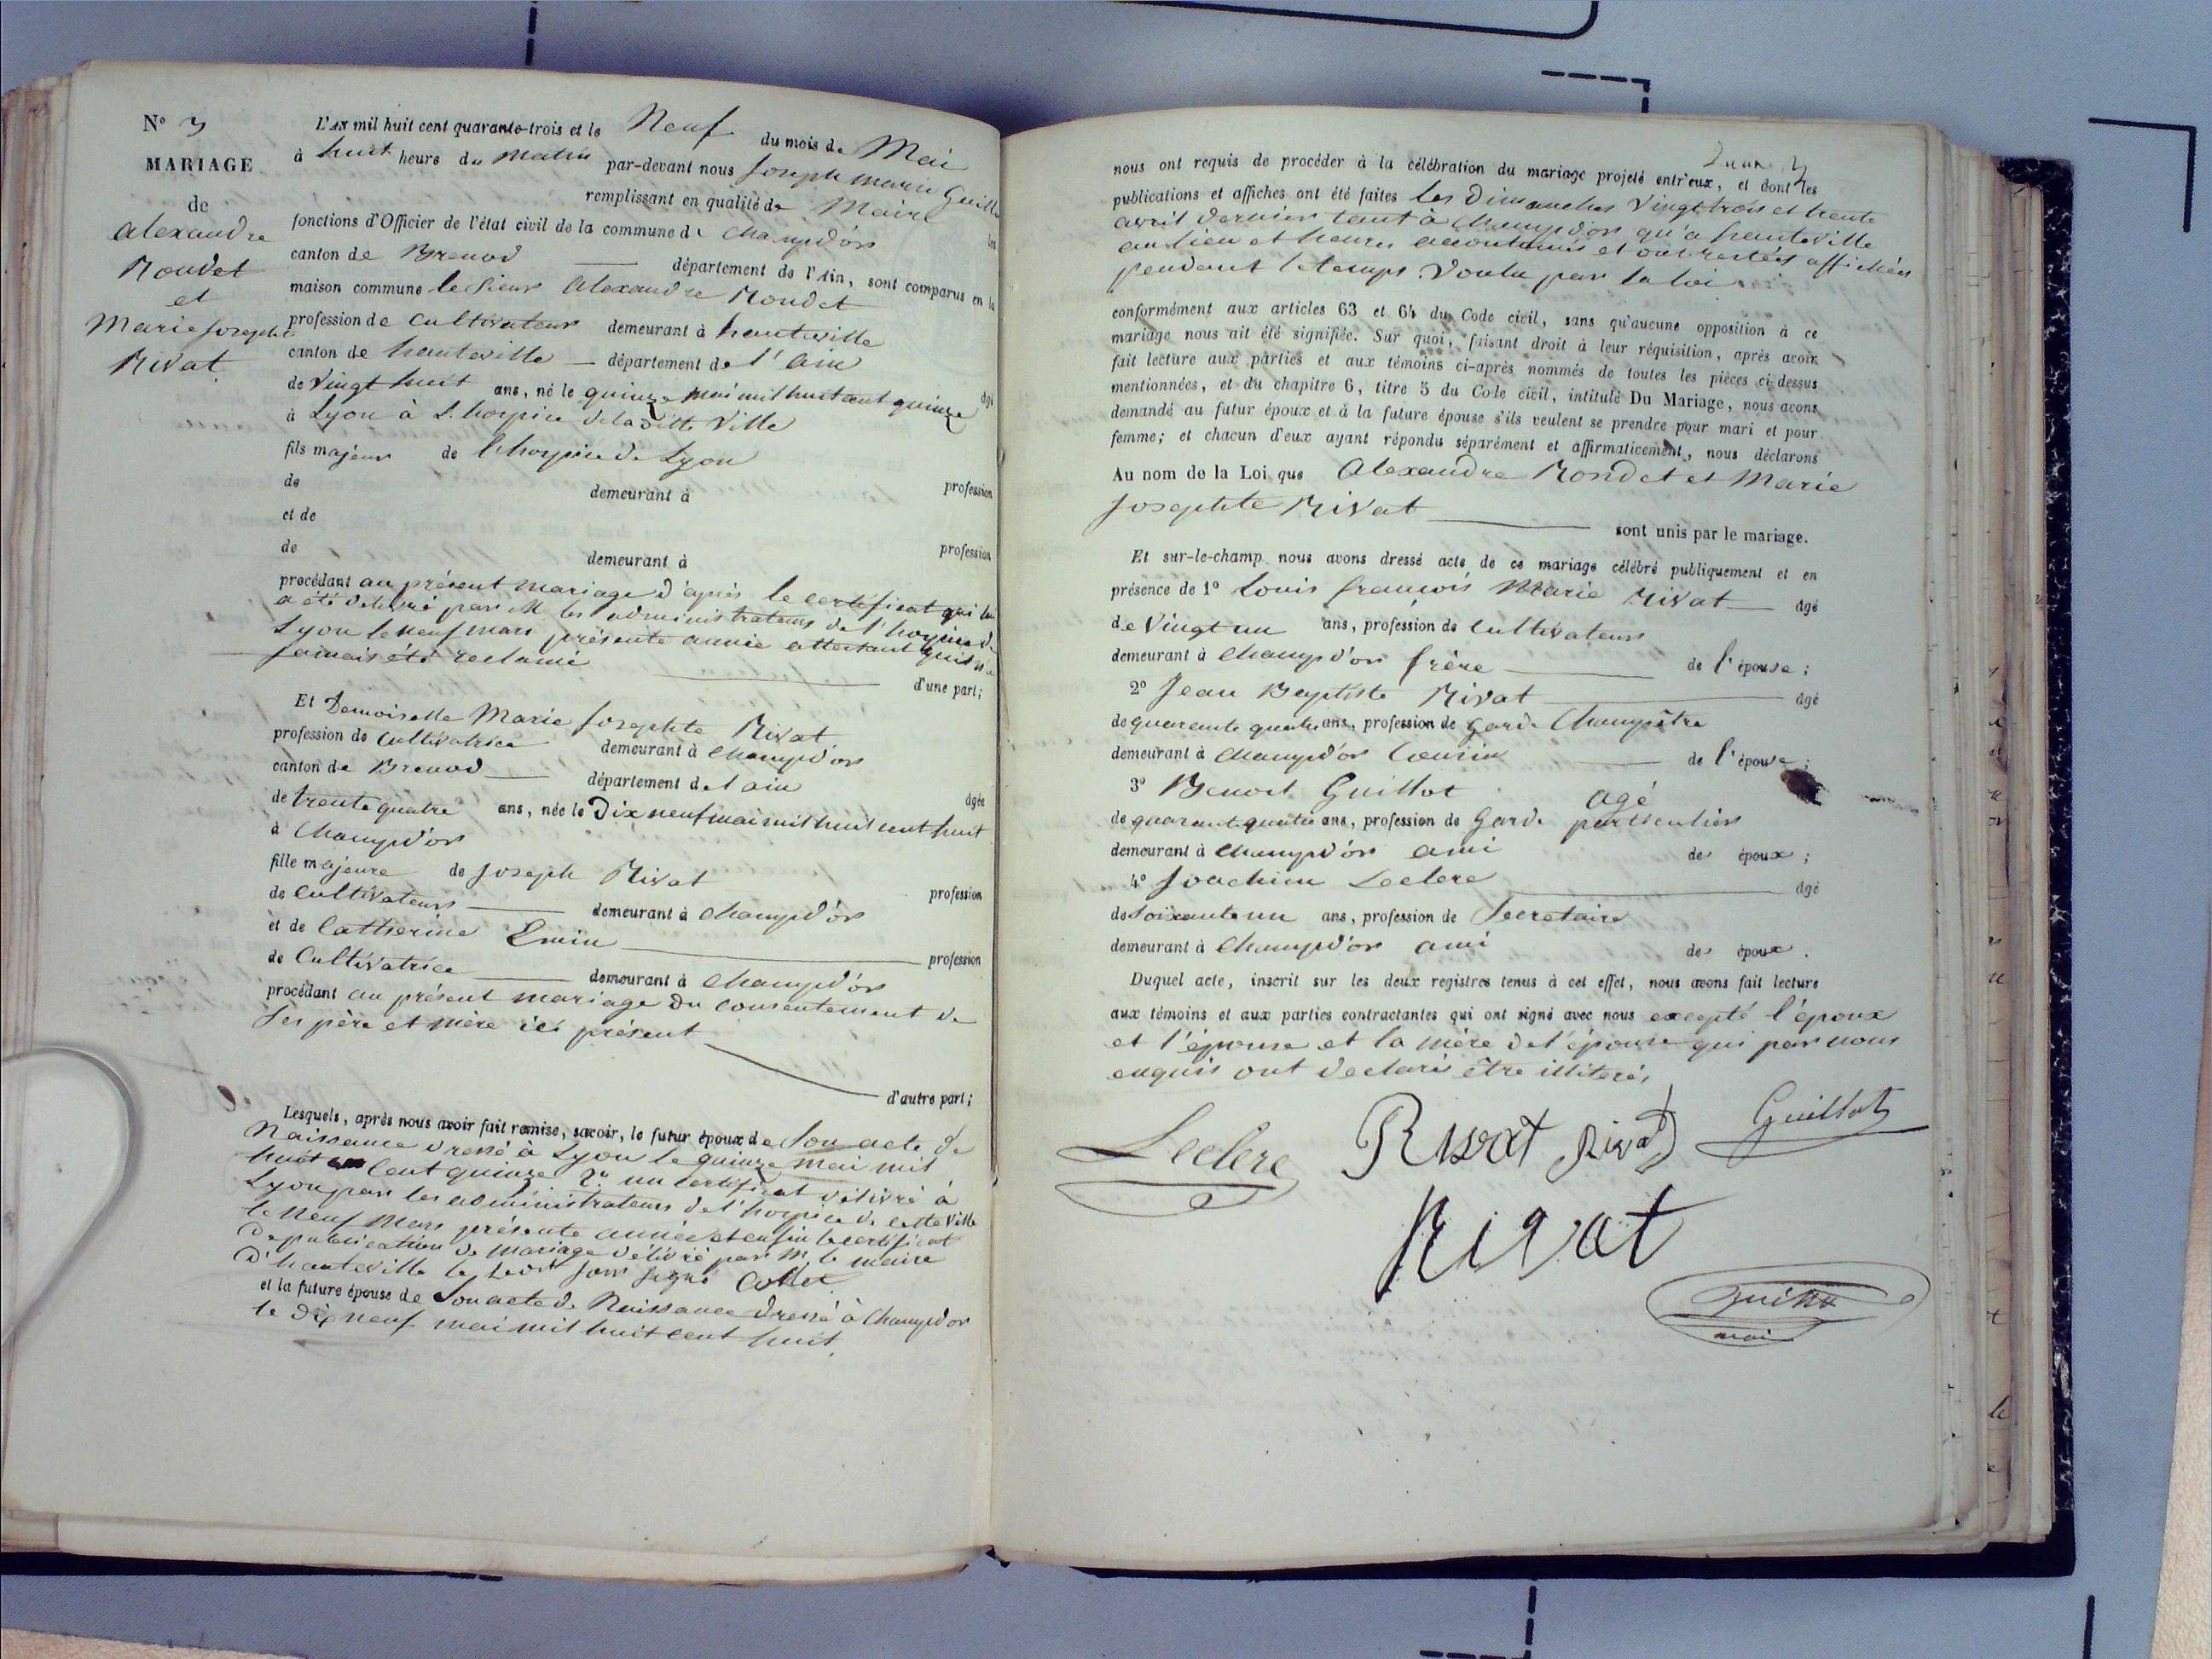 N° 3
MARIAGE
de
alexandre
Rondet
et
Marie Josephte
Rivat
L'An mil huit cent quarante-trois et le Neuf du mois de Mai
à huit heure du matin par-devant nous Joseph marie Guillot
remplissant en qualité de Maire les
fonctions d'Officier de l'état civil de la commune de Champd'or
canton de Brenod département de l'Ain, sont comparus en la
maison commune le Sieur Alexandre Rondet
profession de cultivateur demeurant à hauteville
canton de hauteville département de l'ain
âgé
de vingt huit ans, né le quinze mai mil huit cent quinze
à Lyon à L'hospice de la ditte Ville
fils majeur de l'hospice de Lyon
profession
de demeurant à
et de
profession
de demeurant à
procédant au présent mariage d'après le certificat qui lui
a été délivré par M les administrateurs de l'hospice de
Lyon le neuf mars présente année attestant qu'il n'a
jamais été reclamé
d'une part;
Et Demoiselle Marie Josephte Rivat
profession de cultivatrice demeurant à Champd'or
canton de Brenod département de l'ain
âgée
de trente quatre ans, née le Dix neuf mai mil huit cent huit
à Champd'or
fille majeure de Joseph Rivat
profession
de cultivateur demeurant à Champd'or
et de Catherine Emin profession
de Cultivatrice demeurant à Champd'or
procédant au présent mariage du consentement de
ses père et mère ici présent
d'autre part;
Lesquels, après nous avoir fait remise, savoir, le futur époux de Son acte de
Naissance dressé à Lyon le quinze mai mil
huit cent quinze 2° un certificat délivré à
Lyon par les administrateurs de l'hospice de cette ville
le neuf Mars présente année et enfin le certificat
de publication de mariage délivré par M. le maire
d'hauteville le signé Collet
et la future épouse de Son acte de Naissance dressé à Champdor
le dix neuf mai mil huit cent huit.
nous ont requis de procéder à la célébration du mariage projeté entr'eux, et dont les
publications et affiches ont été faites les Dimanches Vingt trois et trente
avril dernier tant à Champdor qu'a hauteville
au lieu et heures accoutumés et ont restées affichées
pendant le temps voulu par la loi
conformément aux articles 63 et 64 du Code civil, sans qu'aucune opposition à ce
mariage nous ait été signifiée. Sur quoi, faisant droit à leur réquisition, après avoir
fait lecture aux parties et aux témoins ci-après nommés de toutes les pièces ci-dessus
mentionnées, et du chapitre 6, titre 5 du Code civil, intitulé Du Mariage, nous avons
demandé au futur époux et à la future épouse s'ils veulent se prendre pour mari et pour
femme; et chacun d'eux ayant répondu séparément et affirmativement, nous déclarons
Au nom de la Loi que Alexandre Rondet et Marie
Josephte Rivat sont unis par le mariage.
Et sur-le-champ nous avons dressé acte de ce mariage célébré publiquement et en
présence de 1° Louis françois Marie Rivat âgé
de Vingt un ans, profession de cultivateur
demeurant à Champd'or frère de l'épouse;
2° Jean Baptiste Rivat âgé
de quarante quatre ans, profession de garde Champêtre
demeurant à Champd'or Cousin de l'épouse;
3° Benoit Guillot agé
de quarante quatre ans, profession de Garde particulier
demeurant à Champd'or ami des époux;
4° Joachim Leclerc âgé
de Soixante un ans, profession de Secretaire
demeurant à Champd'or ami des époux.
Duquel acte, inscrit sur les deux registres tenus à cet effet, nous avons fait lecture
aux témoins et aux parties contractantes qui ont signé avec nous excepté l'époux
et l'épouse et la mère de l'épouse qui par nous
enquis ont declaré être illiterés
Leclerc Rivat Rivat Guillot
Rivat
Guillot
mair